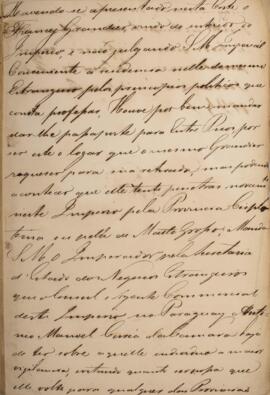 Havendo-se apresentado nesta Corte o
Francez Grandsir, vindo do interior do
Imperio, e não julgando S. M. Imperial
Conveniente a residencia nelle daquelle
Estrangeiro pelos principios politicos que
consta professar, Houve por bem mandar
dar-lhe passaporte para Entre Rios, por
ser este o logar que o mesmo Grandsir
requereo para sua retirada, mas podendo
acontecer que elle tente penetrar novamente
neste Imperio pela Provincia Cispla
tina ou pela de Matto Grosso, Manda
S. M. o Imperador pela Secretaria
d'Estado dos Negocios Estrangeiros
que o Consul e Agente Commercial
deste Imperio no Paraguay, Anto
nio Manoel Correa da Camara haja
de ter sobre aquelle individuo a maior
vigilancia, evitando quanto possa que
elle volte para qualquer das Provincias